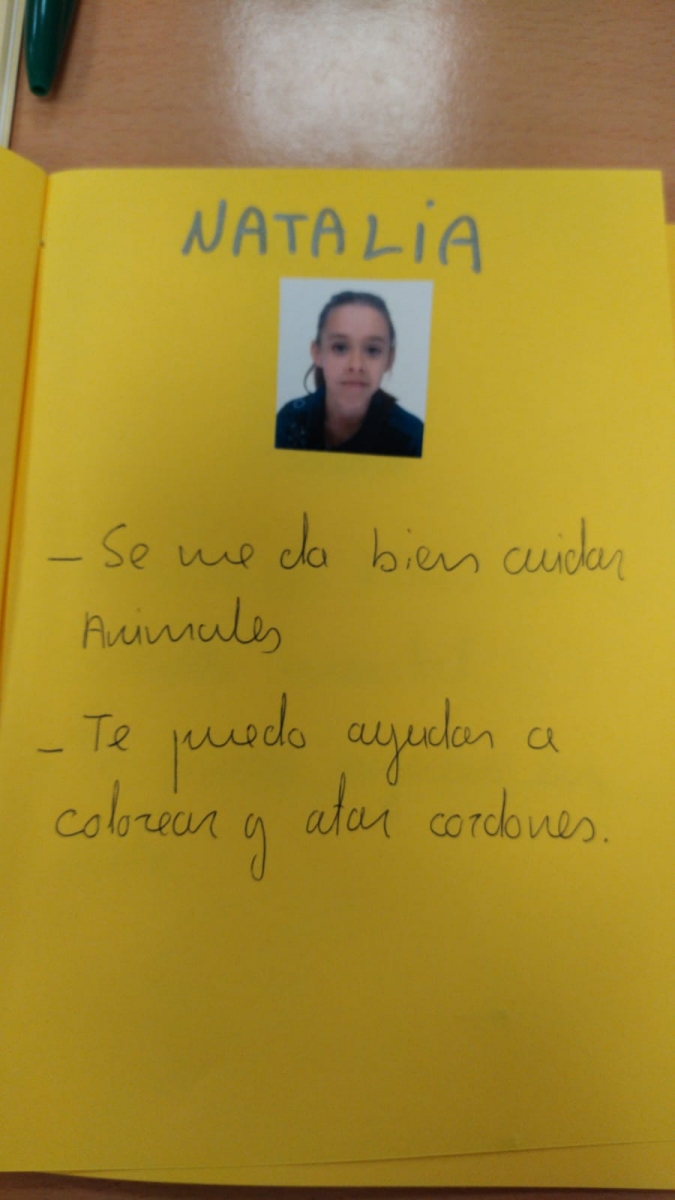 NATALiA
- Se me da bien cuidar
Animales
- Te puedo ayudar a
colorear y atar cordones.